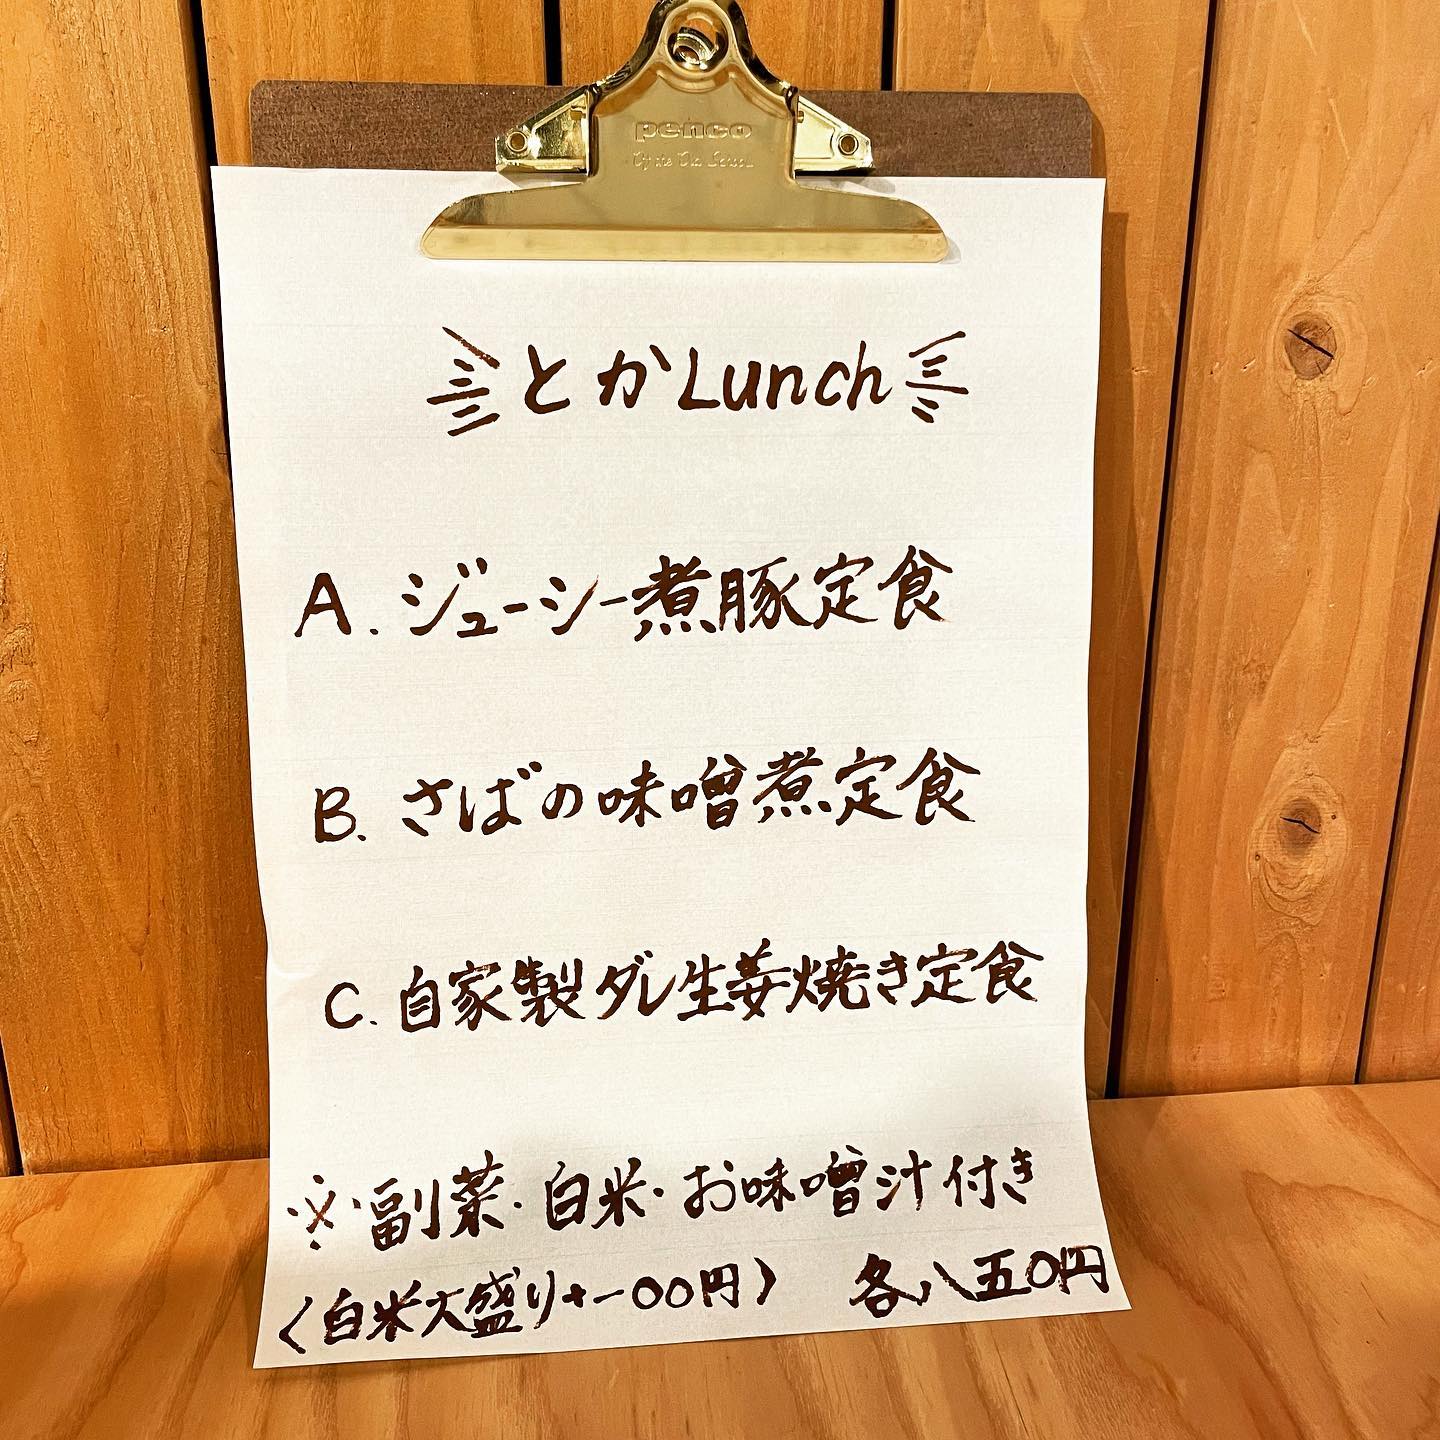 penco
とかLunch
A. ジューシー煮豚定食
B. さばの味噌煮定食
C. 自家製ダレ生姜焼き定食
※副菜・白米・お味噌汁付き
〈白米大盛り+一〇〇円〉 各八五〇円